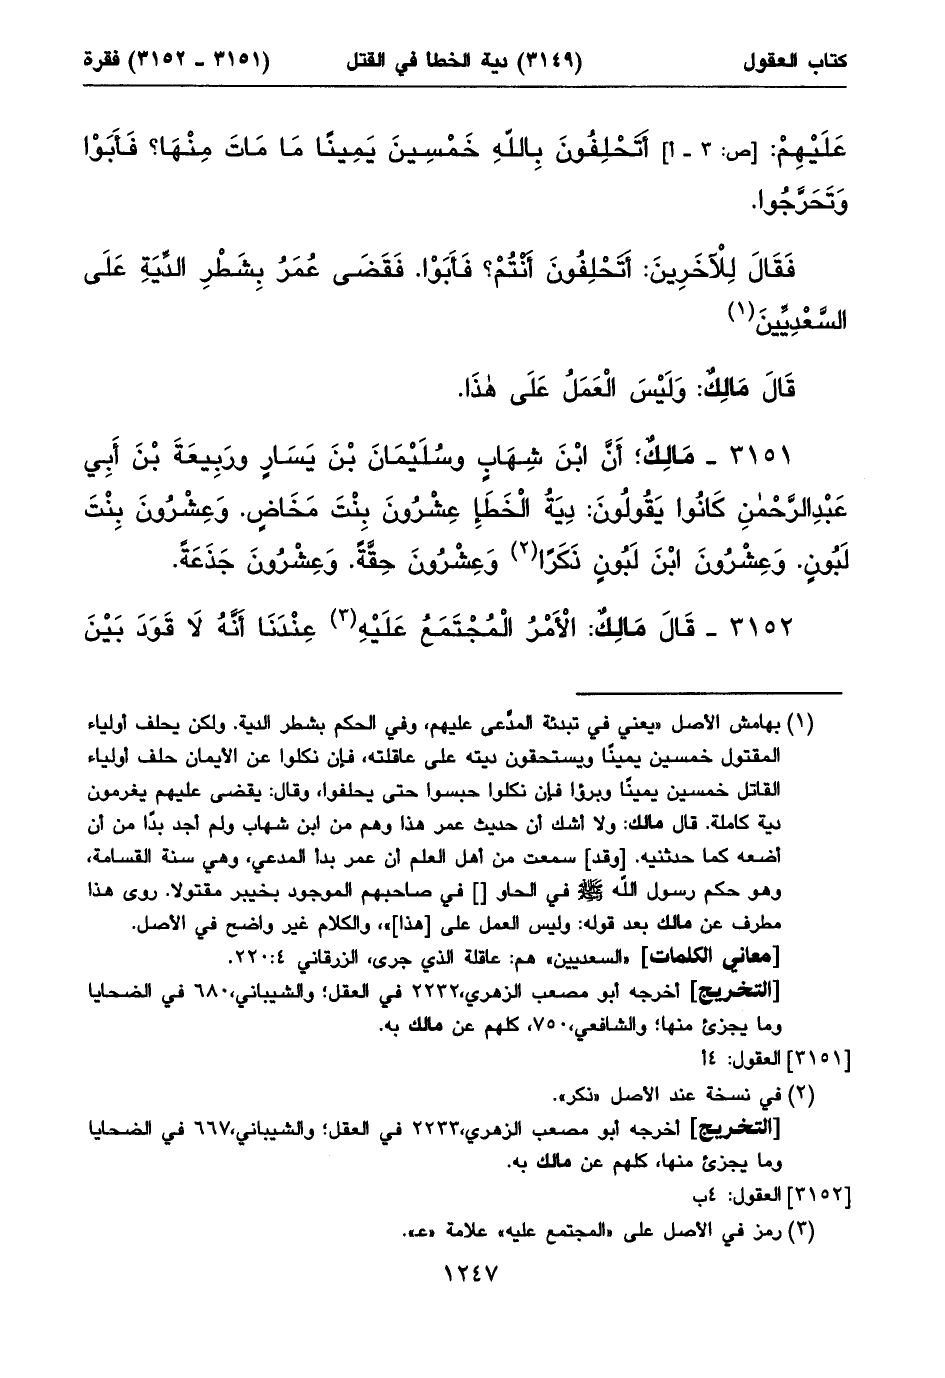 كتاب العقول (٣١٤٩) دية الخطا في القتل (٣١٥١ - ٣١٥٢) فقرة
عَلَيْهِمْ: [ص: ٣ - أ] أَتَحْلِفُونَ بِاللّهِ خَمْسِينَ يَمِينًا مَا مَاتَ مِنْهَا؟ فَأَبَوْا
وَتَحَرَّجُوا.
فَقَالَ لِلْآخَرِينَ: أَتَحْلِفُونَ أَنْتُمْ؟ فَأَبَوْا. فَقَضَى عُمَرُ بِشَطْرِ الدِّيَةِ عَلَى
السَّعْدِيِّينَ(١)
قَالَ مَالِكٌ: وَلَيْسَ الْعَمَلُ عَلَى هٰذَا.
٣١٥١ - مَالِكٌ؛ أَنَّ ابْنَ شِهَابٍ وسُلَيْمَانَ بْنَ يَسَارٍ ورَبِيعَةَ بْنَ أَبِي
عَبْدِالرَّحْمٰنِ كَانُوا يَقُولُونَ: دِيَةُ الْخَطَإِ عِشْرُونَ بِنْتَ مَخَاضٍ. وَعِشْرُونَ بِنْتَ
لَبُونٍ. وَعِشْرُونَ ابْنَ لَبُونٍ ذَكَرًا(٢) وَعِشْرُونَ حِقَّةً. وَعِشْرُونَ جَذَعَةً.
٣١٥٢ - قَالَ مَالِكٌ: الْأَمْرُ الْمُجْتَمَعُ عَلَيْهِ(٣) عِنْدَنَا أَنَّهُ لَا قَوَدَ بَيْنَ
(١) بهامش الأصل «يعني في تبدئة المدَّعى عليهم، وفي الحكم بشطر الدية. ولكن يحلف أولياء
المقتول خمسين يمينًا ويستحقون ديته على عاقلته، فإن نكلوا عن الأيمان حلف أولياء
القاتل خمسين يمينًا وبرؤا فإن نكلوا حبسوا حتى يحلفوا، وقال: يقضى عليهم يغرمون
دية كاملة. قال مالك: ولا أشك أن حديث عمر هذا وهم من ابن شهاب ولم أجد بدًا من أن
أضعه كما حدثنيه. [وقد] سمعت من أهل العلم أن عمر بدأ المدعي، وهي سنة القسامة،
وهو حكم رسول الله ﷺ في الحاو [] في صاحبهم الموجود بخيبر مقتولا. روى هذا
مطرف عن مالك بعد قوله: وليس العمل على [هذا]»، والكلام غير واضح في الأصل.
[معاني الكلمات] «السعديين» هم: عاقلة الذي جرى، الزرقاني ٤: ٢٢٠.
[التخريج] أخرجه أبو مصعب الزهري،٢٢٣٢ في العقل؛ والشيباني،٦٨٠ في الضحايا
وما يجزئ منها؛ والشافعي،٧٥٠، كلهم عن مالك به.
[٣١٥١] العقول: ٤أ
(٢) في نسخة عند الأصل «ذكر».
[التخريج] أخرجه أبو مصعب الزهري،٢٢٣٣ في العقل؛ والشيباني،٦٦٧ في الضحايا
وما يجزئ منها، كلهم عن مالك به.
[٣١٥٢] العقول: ٤ب
(٣) رمز في الأصل على «المجتمع عليه» علامة «عـ».
١٢٤٧